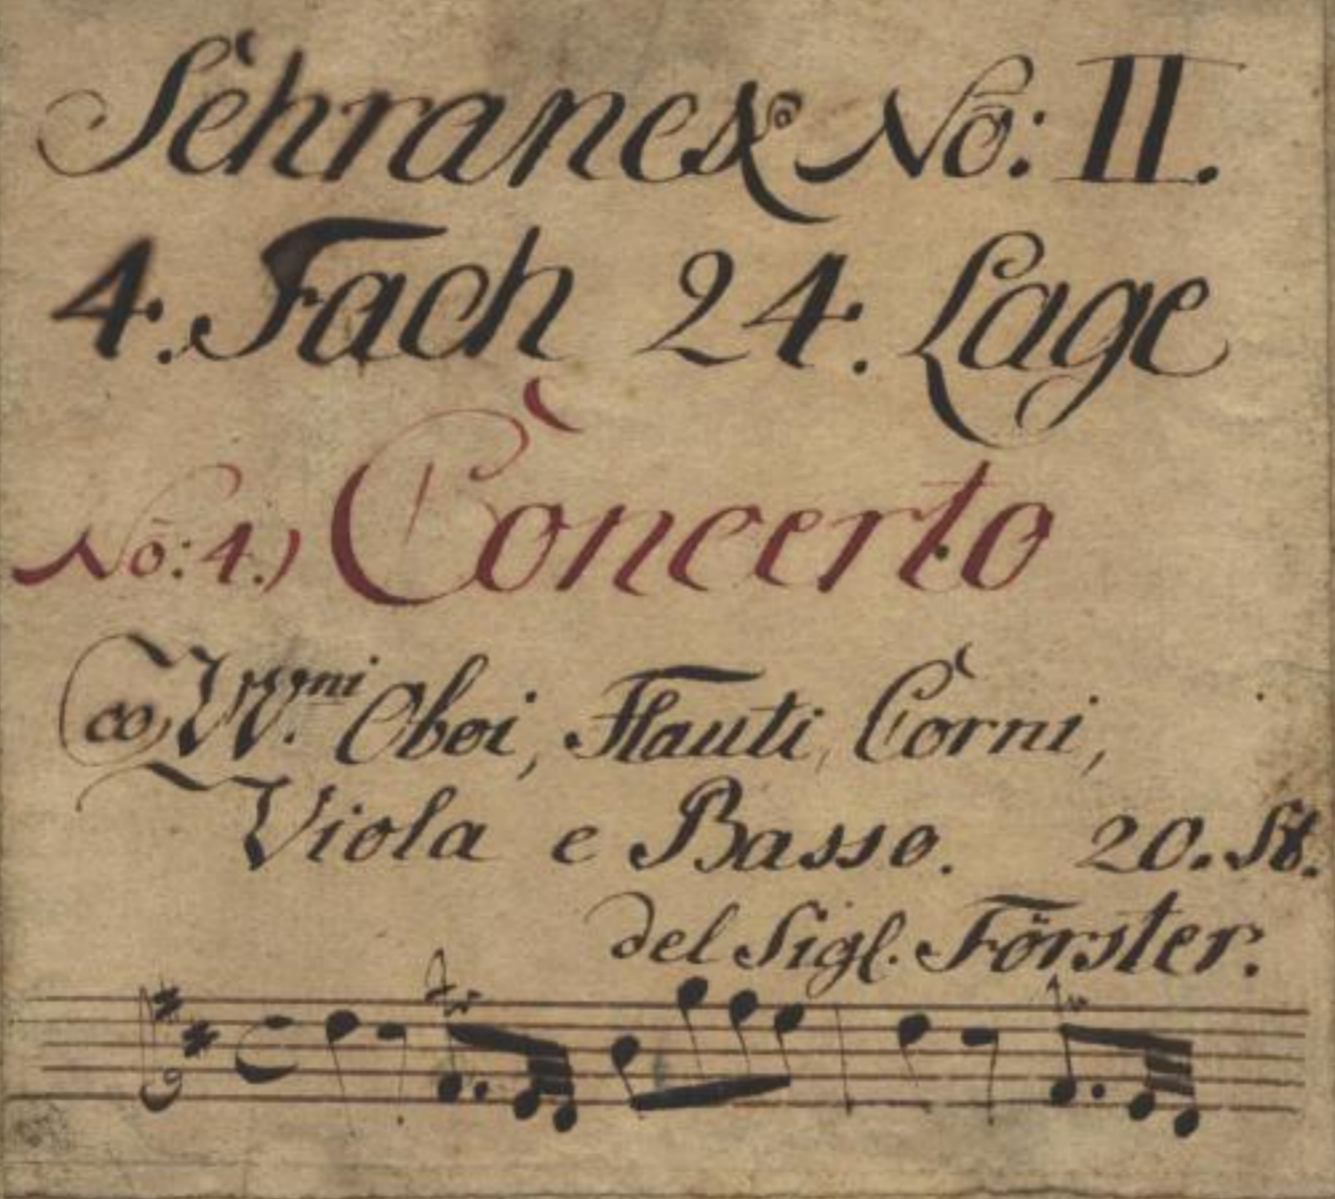 Schranck No: II.
4. Fach 24. Lage
No: 4.) Concerto
co VV.ni Oboi, Flauti, Corni,
Viola e Basso. 20. St.
del Sigl. Förster.